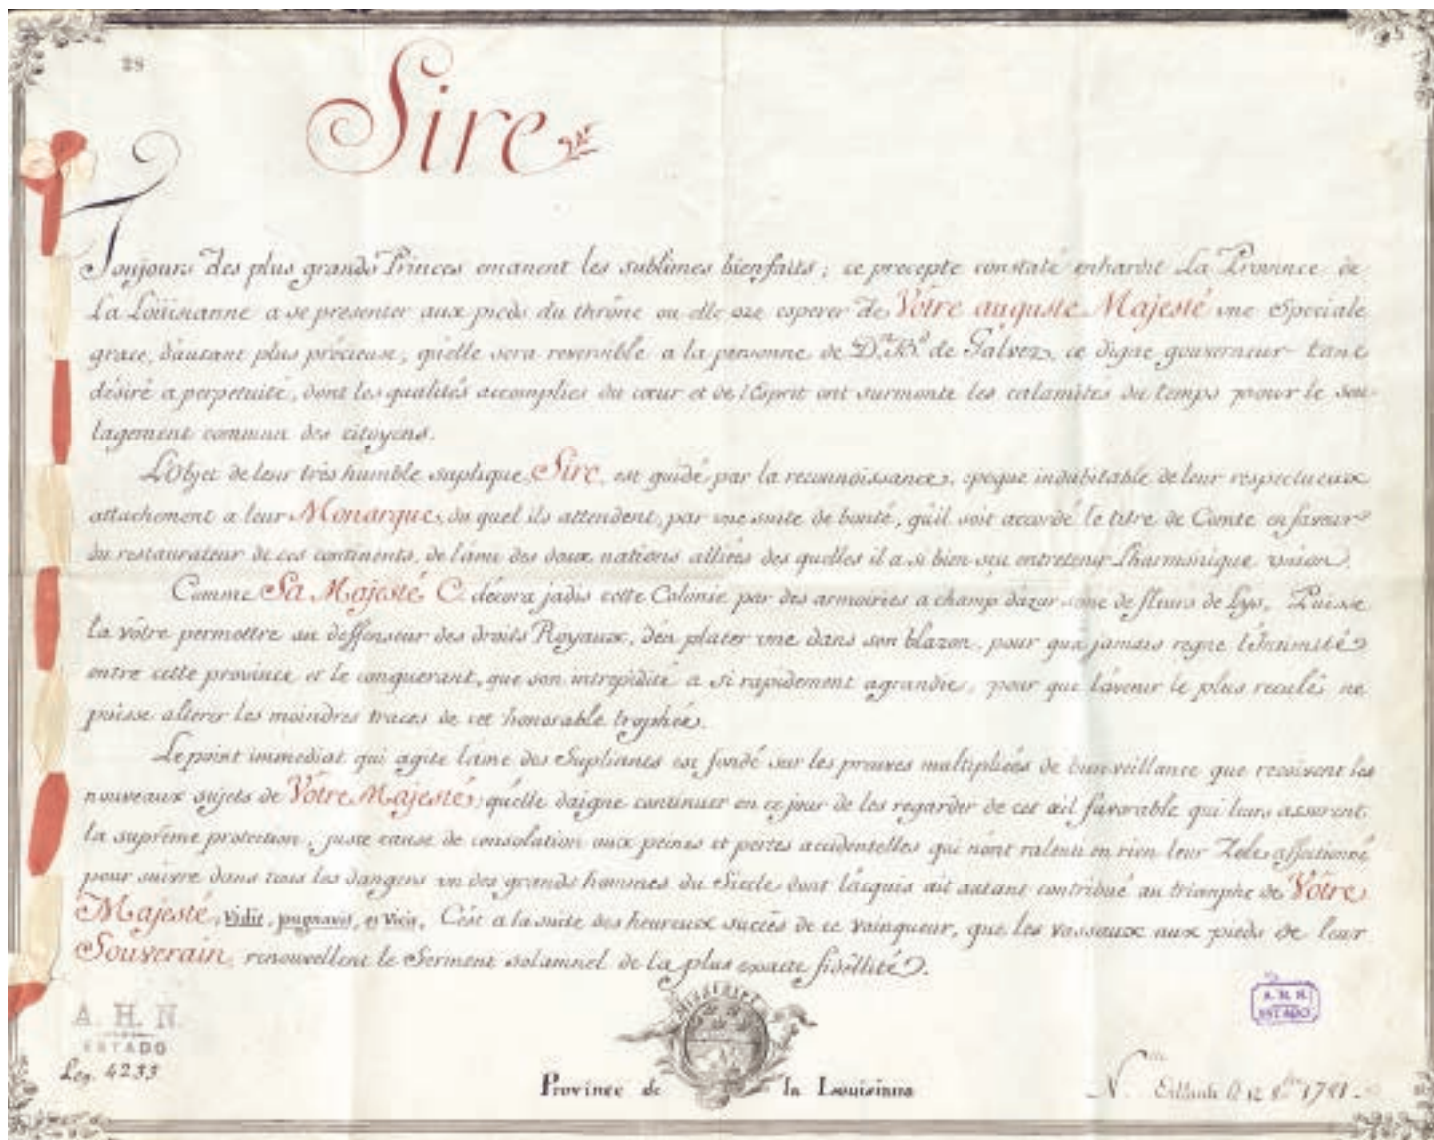 28
Sire
Toujours des plus grands Princes emanent les sublimes bienfaits; ce precepte constaté enhardit La Province de
La Loüisianne a se presenter aux pieds du thrône ou elle oze esperer de Vôtre auguste Majesté une Speciale
grace, d'autant plus précieuse, qu'elle sera reversible a la personne de Dn. Bdo. de Galvez, ce digne gouverneur tant
désiré a perpetuité, dont les qualités accomplies du cœur et de l'Esprit ont surmonté les calamités du temps pour le sou-
lagement commun des citoyens.
L'Objet de leur très humble suplique, Sire, est guidé par la reconnoissance, epoque indubitable de leur respectueux
attachement a leur Monarque, du quel ils attendent, par une suite de bonté, qu'il soit accordé le titre de Comte en faveur
du restaurateur de ces continents, de l'ami des deux nations alliées des quelles il a si bien sçu entretenir l'harmonique union.
Comme Sa Majesté C. décora jadis cette Colonie par des armoiries a champ d'azur semé de fleurs de Lys, Puisse
la vôtre permettre au deffenseur des droits Royaux, d'en placer une dans son blazon, pour qu'a jamais regne l'Intimité
entre cette province et le conquerant, que son intrepidité a si rapidement agrandie, pour que l'avenir le plus reculé ne
puisse alterer les moindres traces de cet honorable trophée.
Le point immediat qui agite l'ame des Supliants est fondé sur les preuves multipliées de bienveillance que reçoivent les
nouveaux sujets de Vôtre Majesté, qu'elle daigne continuer en ce jour de les regarder de cet œil favorable qui leurs assurent
la suprême protection, juste cause de consolation aux peines et pertes accidentelles qui n'ont ralenti en rien leur Zele affectionné
pour suivre dans tous les dangers un des grands hommes du Siecle dont l'acquis ait autant contribué au triomphe de Vôtre
Majesté, Vidit, pugnavit, et Vicit, C'est a la suite des heureux succès de ce vainqueur, que les vassaux aux pieds de leur
Souverain, renouvellent le Serment solamnel de la plus exacte fidellité.
A. H. N.
ESTADO
Leg. 4233
Province de la Louisiana
A. H. N.
ESTADO
Nlle. 12 8bre 1781.